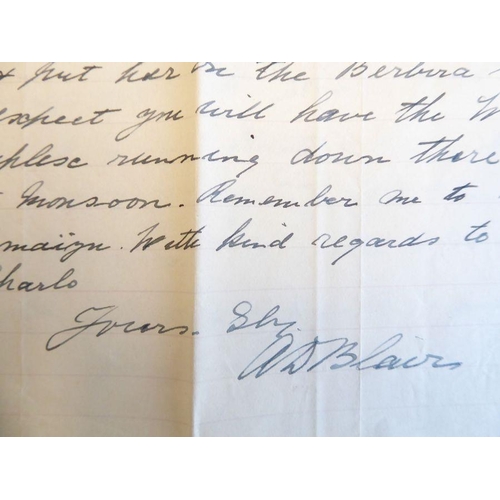 put her in the Berbera
expect you will have the W
running down there
Monsoon. Remember me to
maign. With kind regards to
harlo
Yours. Sly.
A D Blair